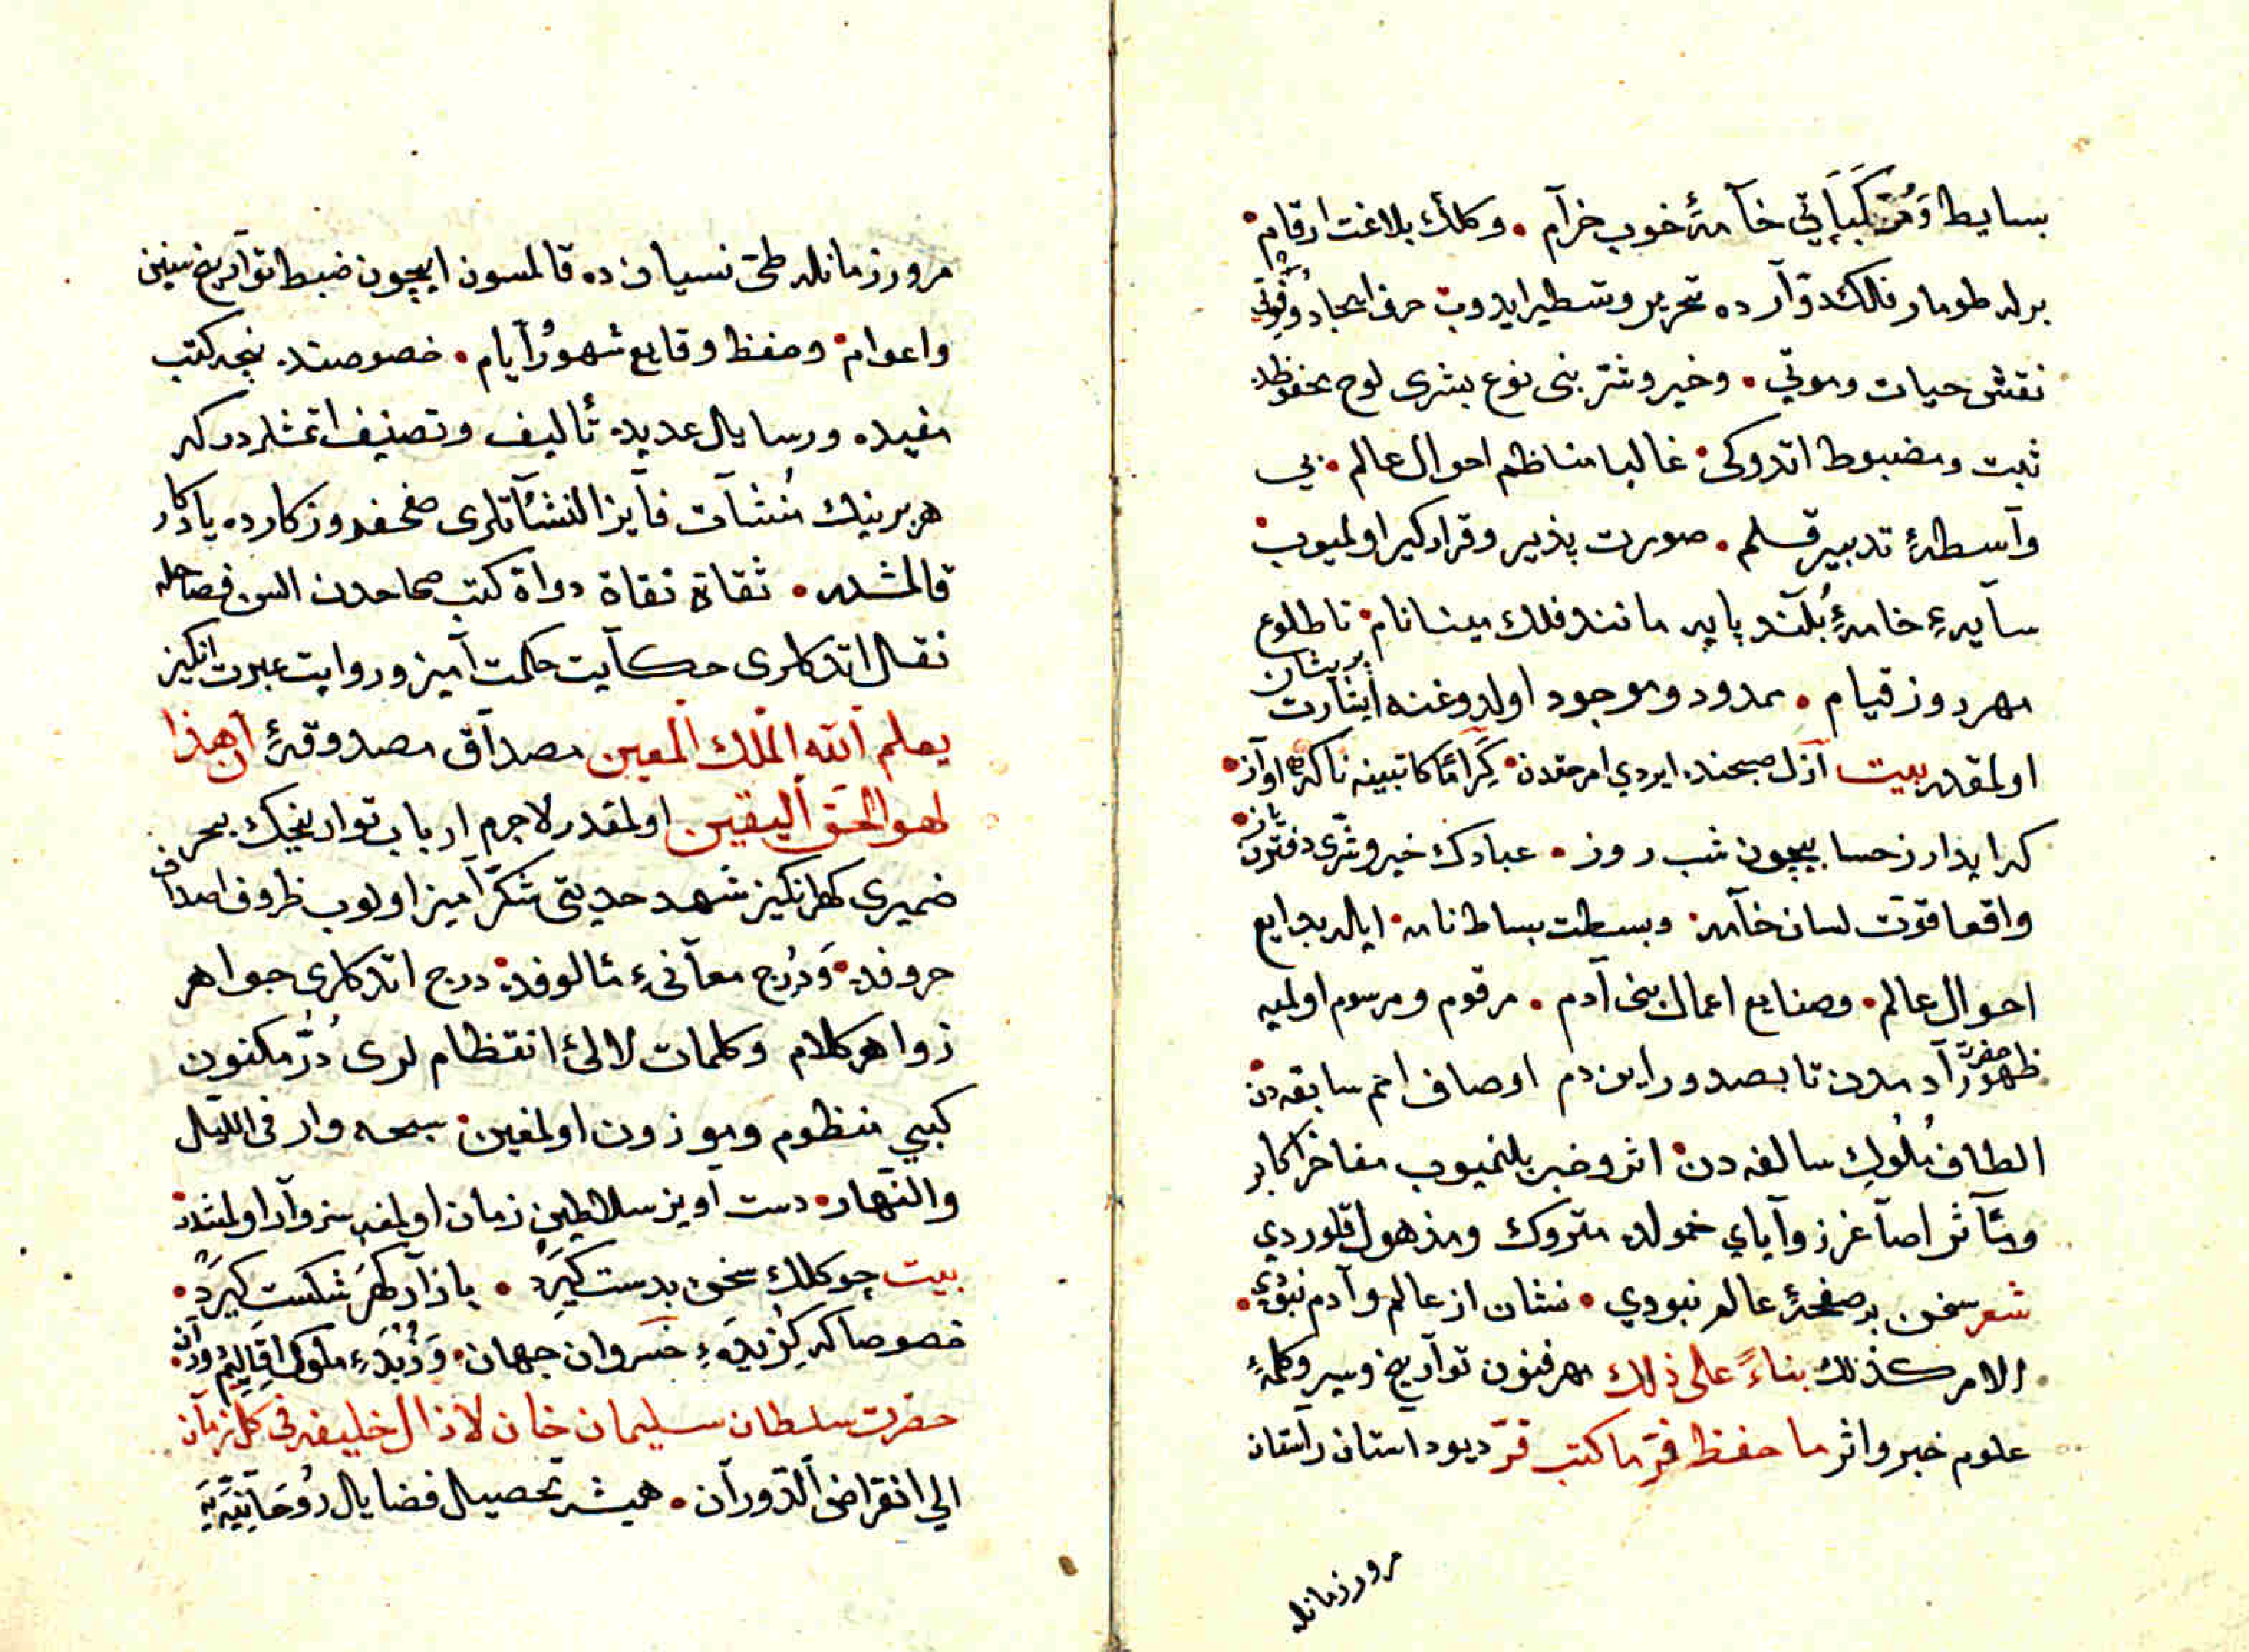 بسايط وَمُرَكَّبَاتِي خآمهٔ خوب خرآم • وكلك بلاغت ارقام •
برله طومار فلك دوّارده تحرير وتسطير ايدوب حرف ايجاد وفوتي
نقش حيات وموتي • وخير وشر بنى نوع بشرى لوح محفوظه
ثبت ومضبوط اتدوكى • غالبا مناظم احوال عالم • بى
وآسطهٔ تدبير قلم • صورت پذير وقرار كير اولميوب •
سآيهء خامهٔ بُلَند پايه مانند فلك مينا نام • تا طلوع
مهر روز قيام • ممدود وموجود اولدوغنه ايشارت بريشان
اولمقدر بيت آزل صبحنده ايردي امر حقدن • كِرَامًا كاتبينه ناكه اواز •
كه ايدار زحسا بيچون شب روز • عبادك خير وشرّى دفترن ياز •
واقعا قوّت لسان خآمه • وبسطت بساط نامه • ايله بدايع
احوال عالم • وصنايع اعمال بنى آدم • مرقوم ومرسوم اولميه
ظهور حضرت آدمدن تا بصدور اين دم اوصاف امم سابقه دن •
الطاف مُلُوكِ سالفه دن • اثر وخبر بلنميوب مفاخر اكابر
ومآثر اصآغر زوآياي خموله متروك ومذهول قلوردي
شعر سخن بر صفحهٔ عالم نبودي • نشان از عالم وآدم نبودي •
الامر كذلك بناءً على ذلك مهر فنون توآريخ وسير وكلمهٔ
علوم خبر واثر ما حفظ فرّ ما كتب قرّ ديو داستان راستان
مرور زمانله
مرور زمانله طىّ نسيانده قالمسون ايچون ضبط توآريخ سنين
واعوام • وحفظ وقايع شهورُ آيام • خصوصنده نيجه كتب
مفيده ورسايل عديده تأليف وتصنيف اتمشلردركه
هر برينك مُنشآت فآيز النشأتلرى صفحهٔ روزكارده يادكار
قالمشدر • ثقاة نقاة رواة كتب صحاحدن السن فصاحله
نقل اتدكلرى حكآيت حكمت آميز وروايت عبرت انكيز
يعلم الله الملك المعين مصدآق مصدوقهٔ ان هذا
لهو الحق اليقين اولمقدر لاجرم ارباب تواريخك بحر
ضميرى كهر انكيز شهد حديثى شكّر آميز اولوب ظروف اصداف
حروفه • وَدُرج معآنىء مألوفه • درج اتدكلرى جواهر
زواهر كلام وكلمات لالئ انتظام لرى دُرّ مكنون
كبي منظوم وموزون اولمغين • سبحه وار فى الليل
والنهار • دست آويز سلاطين زمان اولمغه سزوآر اولمشدر •
بيت چو كلك سخن بدست كيرَد • بازآر كهر شكست كيرَد •
خصوصا كه كُزيدهء خسروان جهان • وَزُبدهء ملوك اقاليم ودوران •
حضرت سلطان سليمان خان لا زال خليفه فى كل زمآن
الي انقراض الدّورآن • هميشه تحصيل فضايل رُوحَانِيّه يَه